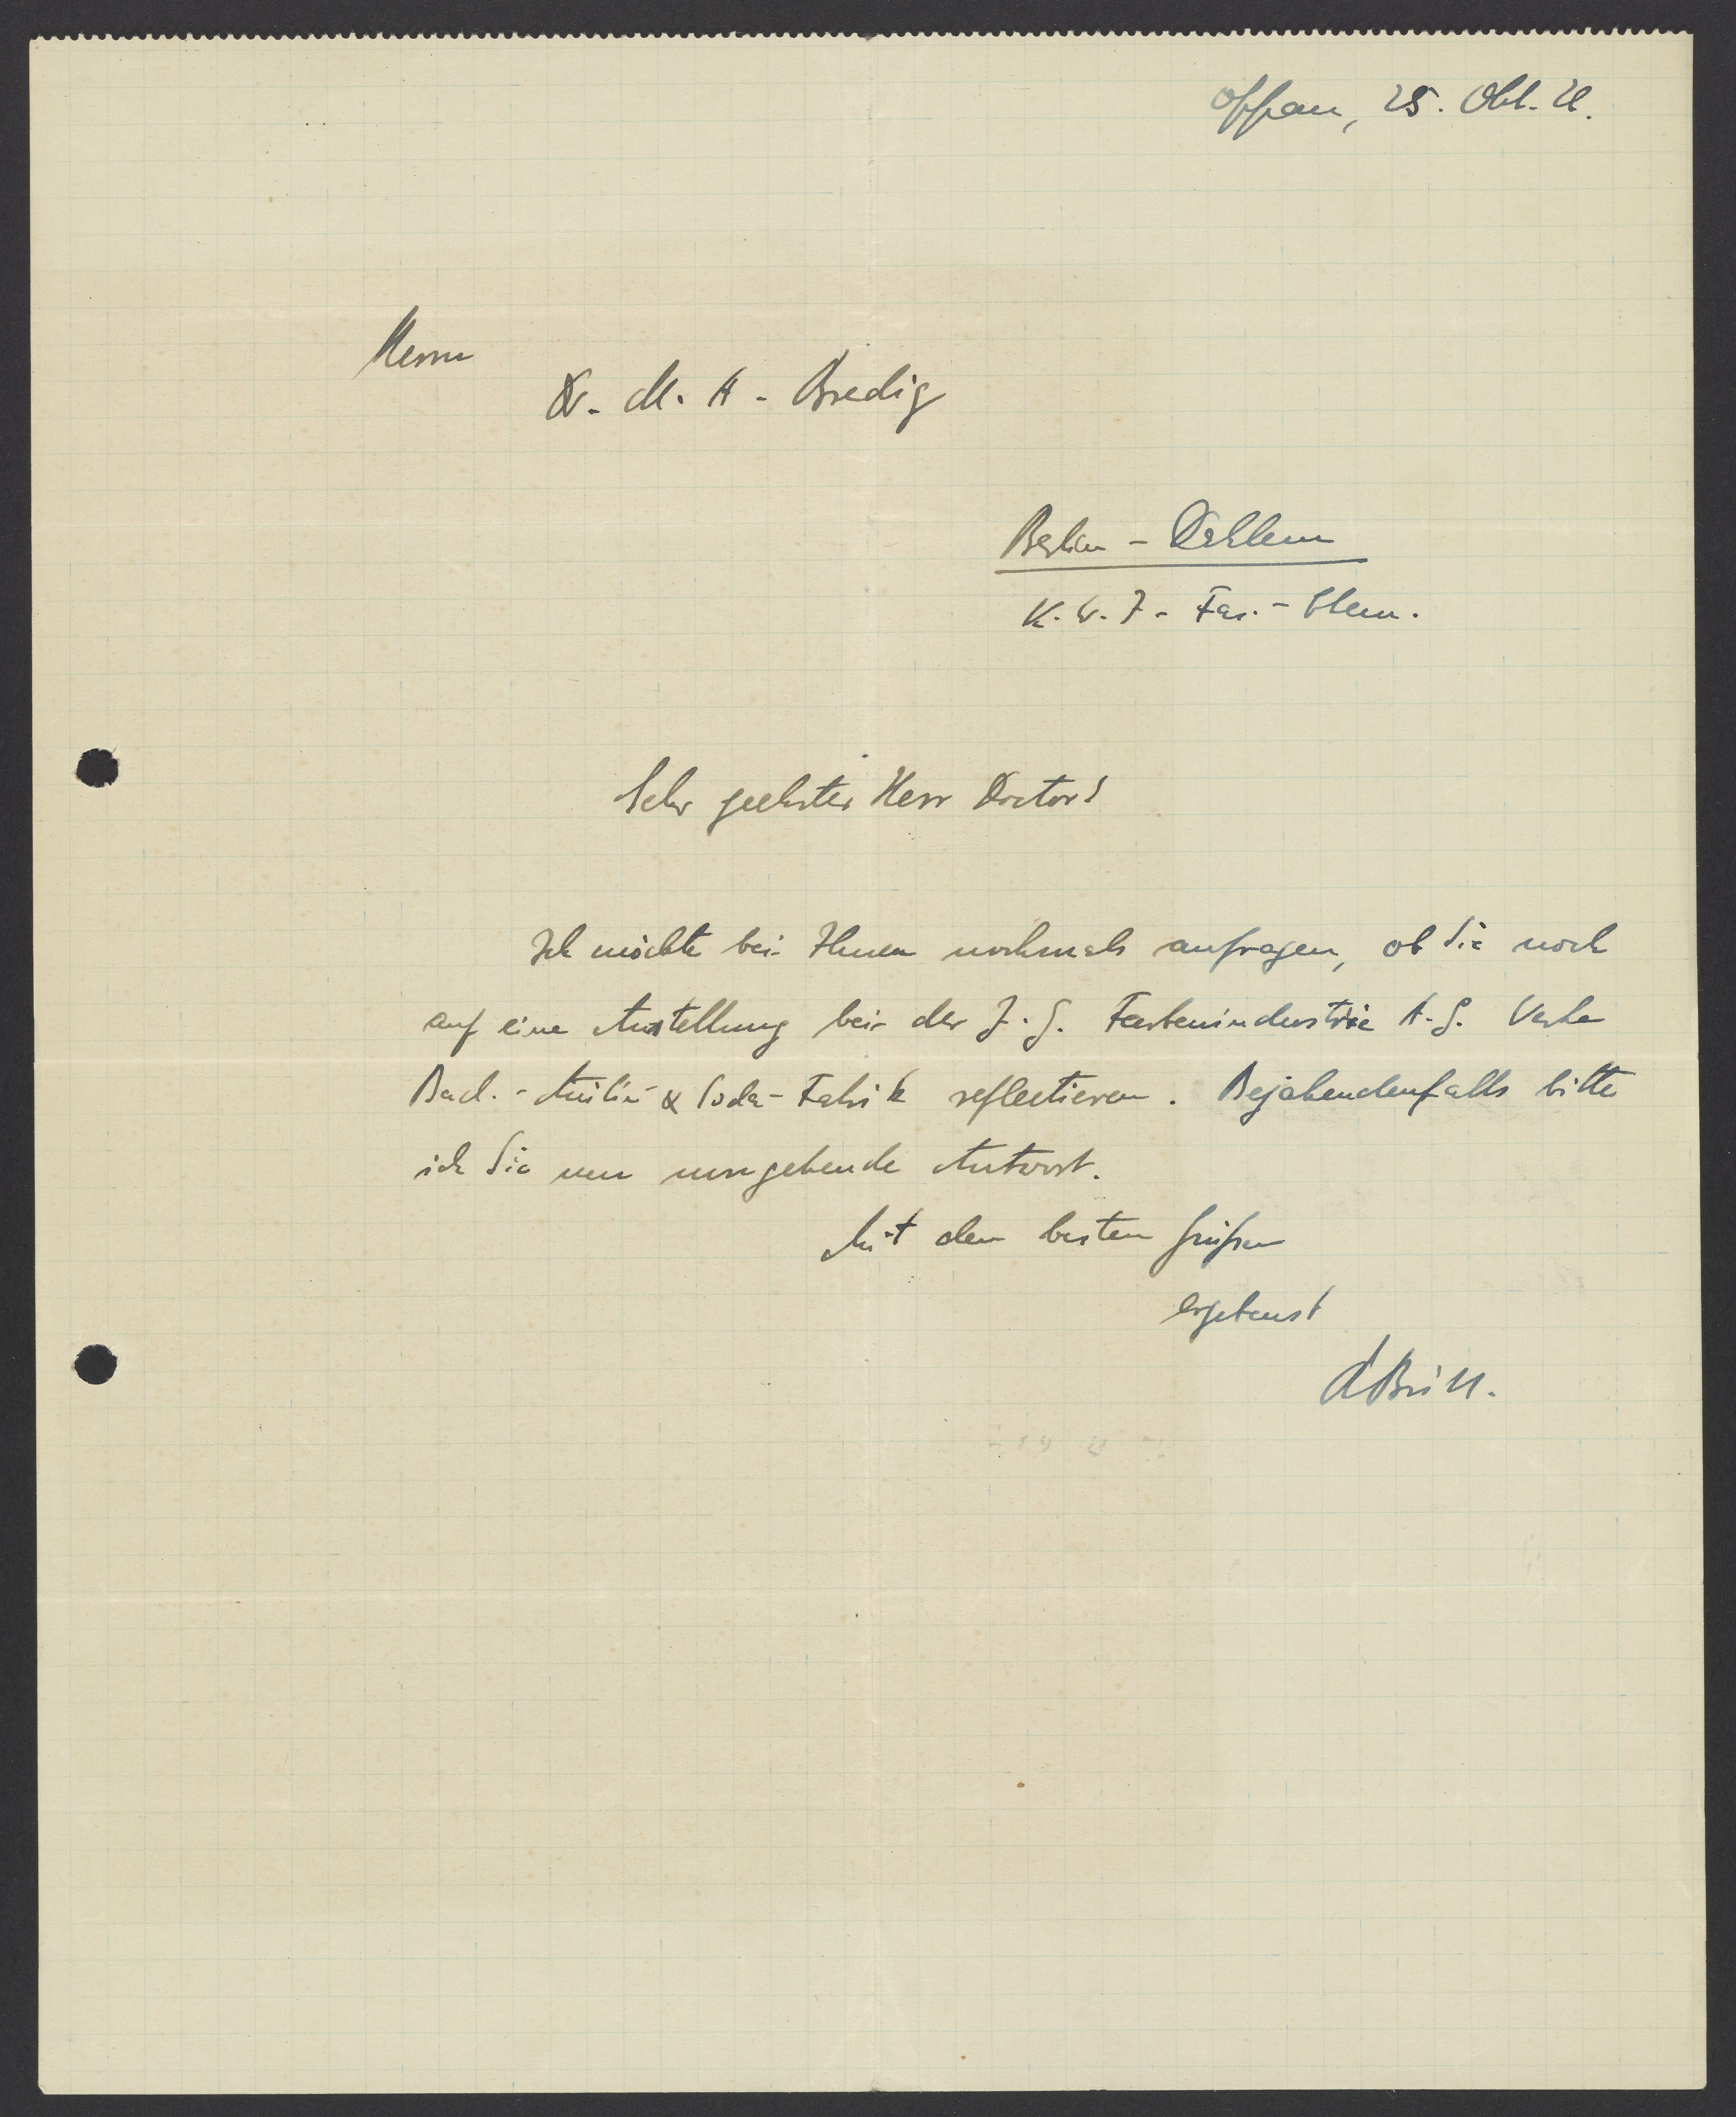 Oppau, 25. Okt. 26.
Herrn
Dr. M. A. Bredig
Berlin - Dahlem
K. W. I - Fas. - Chem.
Sehr geehrter Herr Doctor!
Ich möchte bei Ihnen nochmals anfragen, ob Sie noch
auf eine Anstellung bei der I. G. Farbenindustrie A. G. Werke
Bad. - Anilin & Soda - Fabrik reflectieren. Bejahendenfalls bitte
ich Sie um umgehende Antwort.
Mit den besten Grüßen
ergebenst
RBrill.